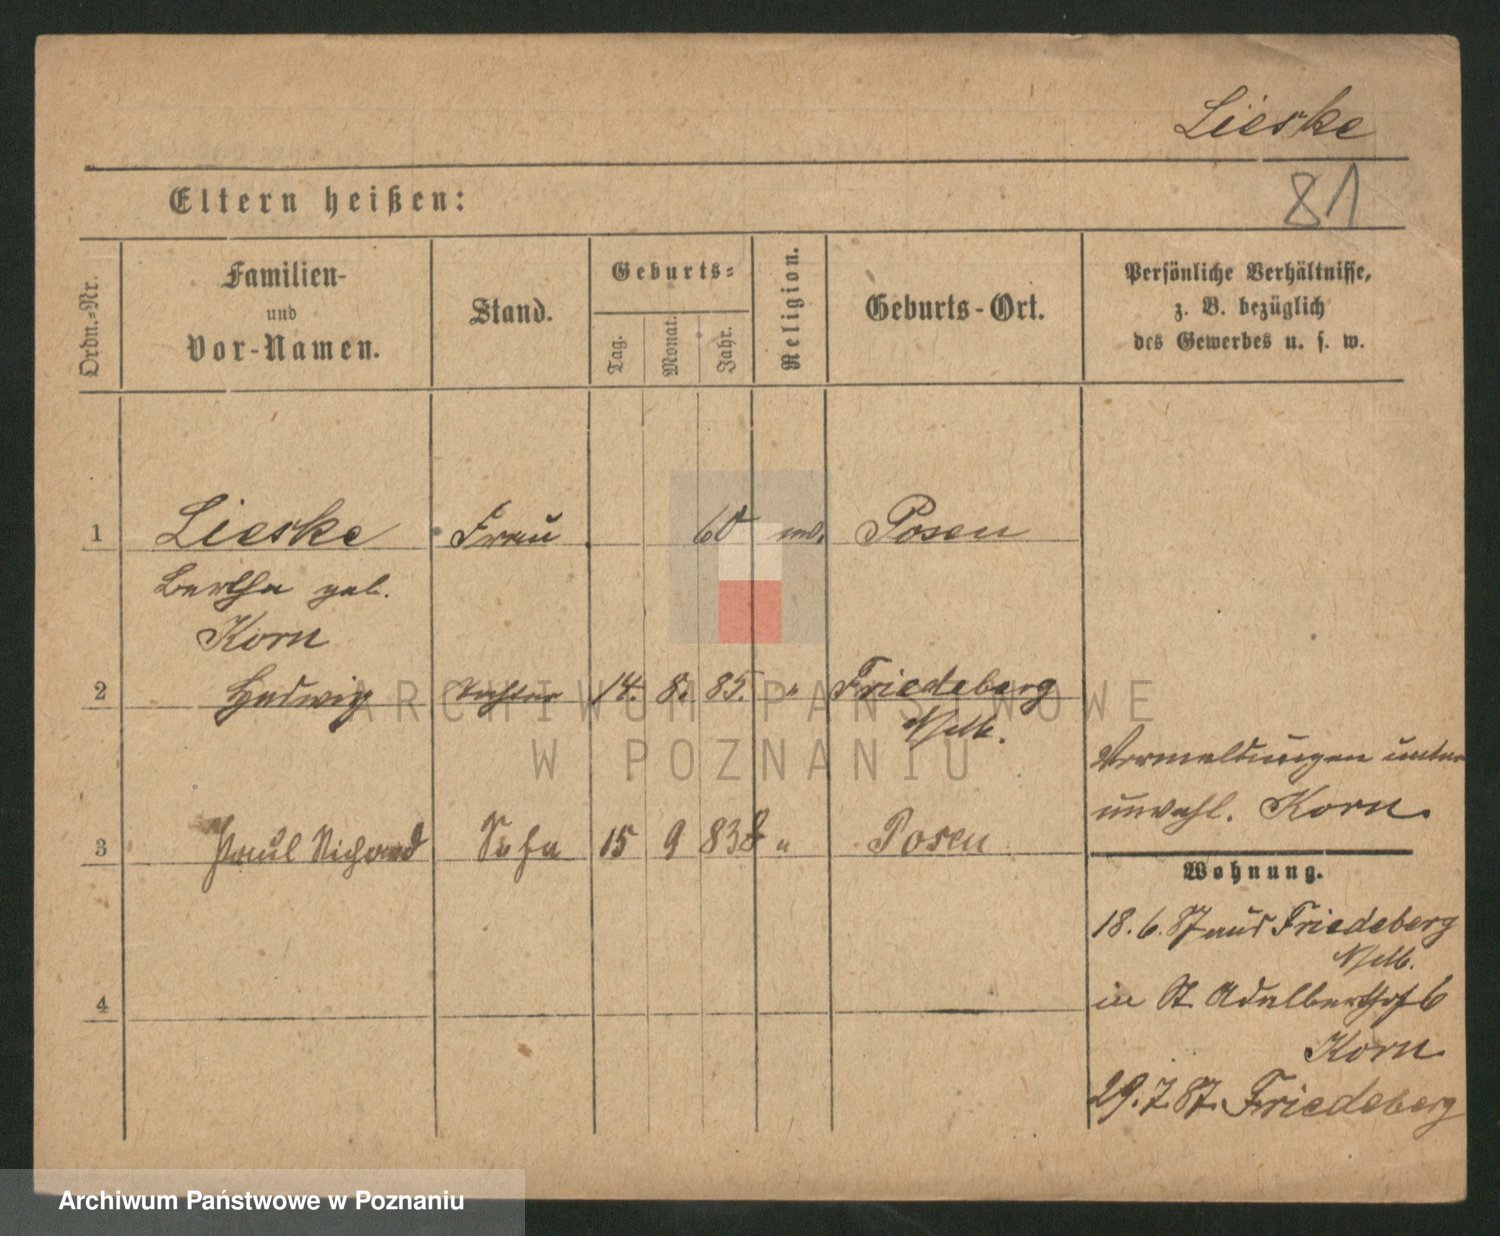 Lieske
81
Eltern heißen:
Ordn.-Nr.
Familien-
und
Vor-Namen.
Stand.
Geburts-
Tag.
Monat.
Jahr.
Religion.
Geburts-Ort.
Persönliche Verhältnisse,
z. B. bezüglich
des Gewerbes u. s. w.
1 Lieske Frau 60 Posen
Bertha geb.
Korn
2 Hedwig Tochter 14. 8. 85. " Friedeberg
N/M.
3 Paul Richard Sohn 15 9 83 " Posen
4
Vermeldungen unter
unverehl. Korn.
Wohnung.
18. 6. 87 aus Friedeberg
N/M.
in St. Adalberthof 6
Korn
29. 7. 87. Friedeberg
ARCHIWUM PAŃSTWOWE
W POZNANIU
Archiwum Państwowe w Poznaniu